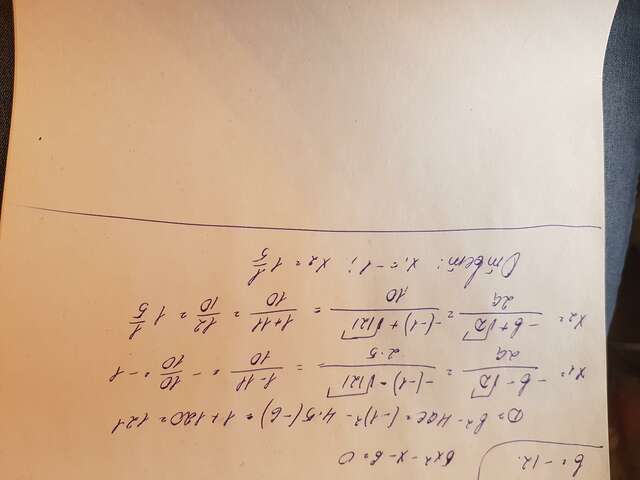 б = -12.
5x² - x - 6 = 0
D = b² - 4ac = (-1)² - 4·5·(-6) = 1 + 120 = 121
x₁ = (-b - √D)/2a = (-(-1) - √121)/2·5 = (1 - 11)/10 = -10/10 = -1
x₂ = (-b + √D)/2a = (-(-1) + √121)/10 = (1 + 11)/10 = 12/10 = 1 1/5
Ответ: x₁ = -1; x₂ = 1 1/5